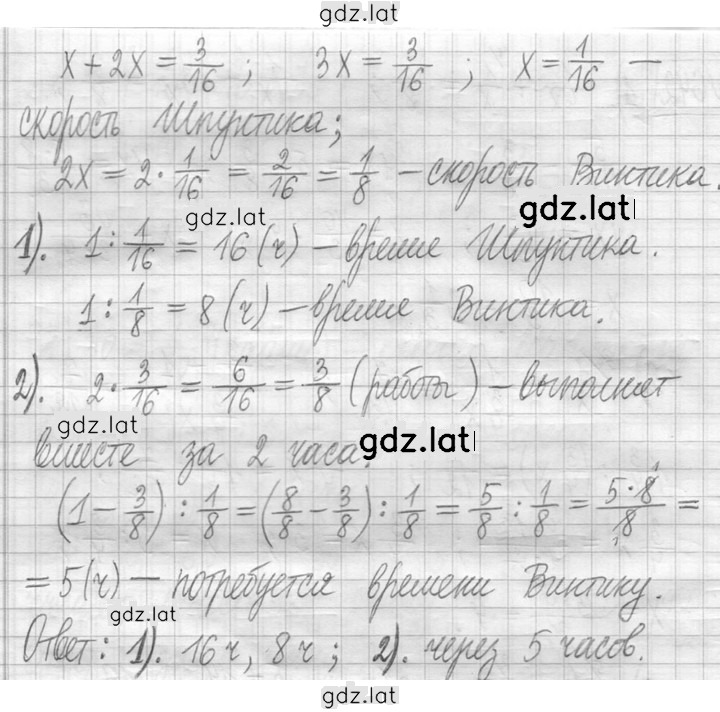 gdz.lat
x + 2x = 3/16 ; 3x = 3/16 ; x = 1/16 —
скорость Шпунтика;
2x = 2 · 1/16 = 2/16 = 1/8 – скорость Винтика.
gdz.lat gdz.lat
1). 1 : 1/16 = 16 (ч) – время Шпунтика.
1 : 1/8 = 8 (ч) – время Винтика.
2). 2 · 3/16 = 6/16 = 3/8 (работы) – выполнят
gdz.lat gdz.lat
вместе за 2 часа.
(1 – 3/8) : 1/8 = (8/8 – 3/8) : 1/8 = 5/8 : 1/8 = 5·8/18 =
= 5 (ч) – потребуется времени Винтику.
gdz.lat
Ответ: 1). 16 ч, 8 ч ; 2). через 5 часов.
gdz.lat